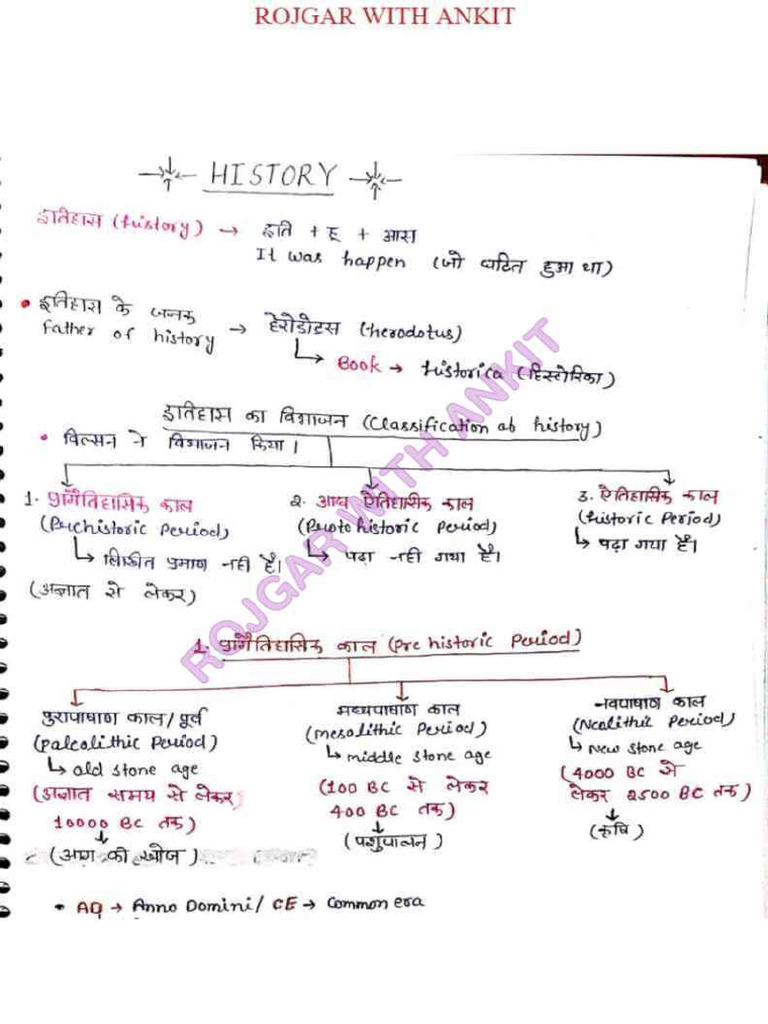 ROJGAR WITH ANKIT
HISTORY
इतिहास (History) → इति + ह + आस
It was happen (जो घटित हुआ था)
• इतिहास के जनक
Father of history → हेरोडोटस (Herodotus)
Book → Historica (हिस्टोरिका)
इतिहास का विभाजन (Classification of history)
• विल्सन ने विभाजन किया।
1. प्रागैतिहासिक काल
(Prehistoric Period)
लिखित प्रमाण नहीं है।
(अज्ञात से लेकर)
2. आद्य ऐतिहासिक काल
(Proto historic Period)
पढ़ा नहीं गया है।
3. ऐतिहासिक काल
(Historic Period)
पढ़ा गया है।
ROJGAR WITH ANKIT
1. प्रागैतिहासिक काल (Pre historic Period)
पुरापाषाण काल/पूर्व
(Paleolithic Period)
old stone age
(अज्ञात समय से लेकर
10000 BC तक)
(आग की खोज)
मध्यपाषाण काल
(mesolithic Period)
middle stone age
(100 BC से लेकर
400 BC तक)
(पशुपालन)
नवपाषाण काल
(Neolithic Period)
New stone age
(4000 BC से
लेकर 2500 BC तक)
(कृषि)
• AD → Anno Domini/ CE → Common era